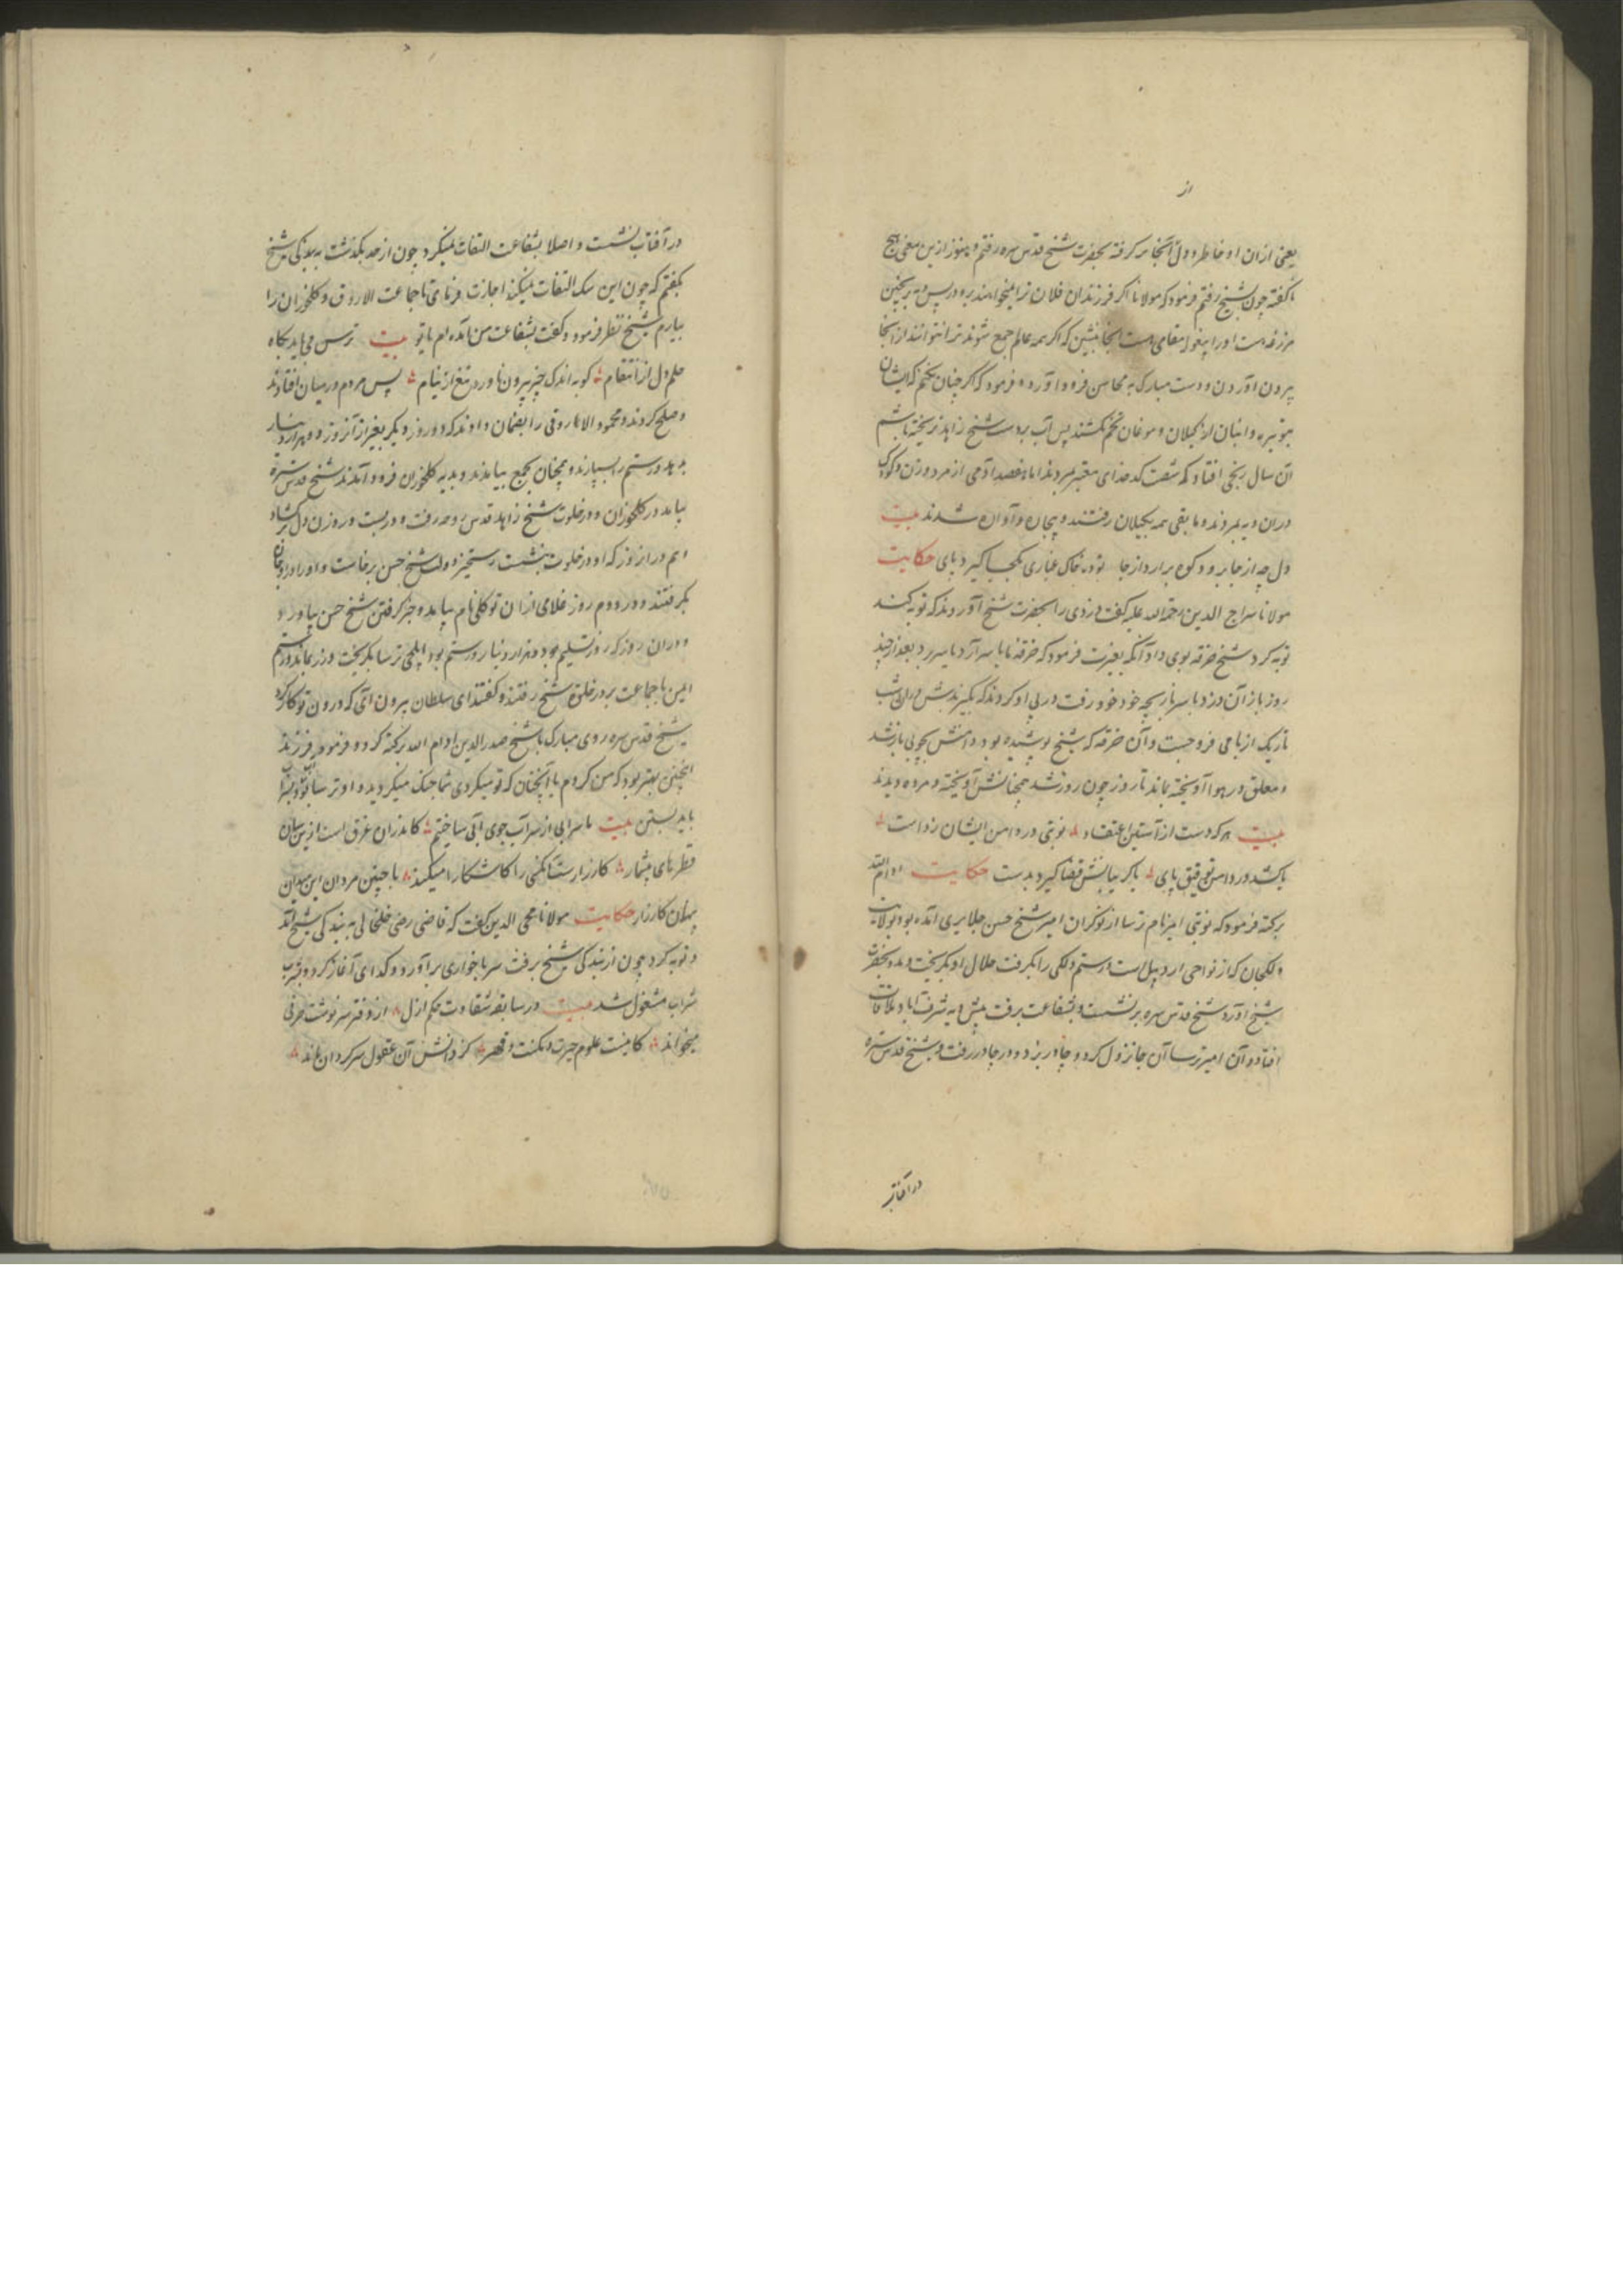 از
یعنی ازان او خاطر و دل آنجا بر گرفته بحضرت شیخ قدس سره رفتم و هنوز ازین معنی هیچ
ناگفته چون بشیخ رفتم فرمود که مولانا اگر فرزندان فلان ترا میخواهند برو در پس دیه بریخین
مزرعه است او را مقامی هست آنجا بنشین که اگر همه عالم جمع شوند ترا نتوانند از آنجا
بیرون آوردن و دست مبارک به محاسن فرود آورد و فرمود که اگر چنان نکنم که ایشان
گیلان و موغان تخم نکشتند پس آب بدست شیخ زاهد نریخته باشم
آن سال رنجی افتاد که شصت کدخدای معتبر بمردند اما هفصد آدمی از مرد و زن و کودک
دران دیه بمردند و مابقی همه بگیلان رفتند و بیچاره و آواره شدند بیت
دل چه از جا برود کوه برآرد از جا توده خاک غباری بکجا گیرد پای حکایت
مولانا سراج الدین رحمة الله علیه گفت دزدی را بحضرت شیخ آوردند که توبه کند
توبه کرد شیخ خرقه بوی داد آنگه بغیرت فرمود که خرقه ما یا سر آرد یا سر برد بعد از چند
روز باز آن دزد با سر بازیچه خود رفت در پی او کردند که بگیرندش دران شب
تاریک از بامی فرو جست و آن خرقه که شیخ پوشیده بود دامنش بچوبی بازشد
و معلق در هوا آویخته بماند تا روز چون روز شد همچنانش آویخته و مرده دیدند
بیت هر که دست از آستین اعتقاد نوبتی در دامن ایشان زدست
یا کشد در دامن توفیق پای یا گریبانش قضا گیرد بدست حکایت ادام الله
برکته فرمود که نوبتی امیر نام ترسا از نوکران امیر شیخ حسن جلایری آمده بود بولایت
ولکجان که از نواحی اردبیل است و رستم ولکی را بگرفت حلال او بگریخت و بحضرت
شیخ آورد شیخ قدس سره برنشست و بشفاعت برفت پیش دیه شرف آباد ملاقات
افتاد و آن امیر ترسا آن جا نزول کرد و چادر بزد و در چادر رفت و شیخ قدس سره
در آفتاب
در آفتاب نشست و اصلا بشفاعت التفات نمیکرد چون از حد بگذشت به بندگی شیخ
بگفتم که چون این سگ التفات نمیکند اجازت فرمای تا جماعت الاروق و کلخوران را
بیارم شیخ نظر فرمود و گفت بشفاعت من آمده ام یا تو بیت ترس می باید بگاه
حلم دل از انتقام کو به اندک چیز بیرون ناورد تیغ از نیام پس مردم در میان افتادند
و صلح کردند و محمود الاروقی را بضمان دادند که دو روز دیگر بغیر از آنروز دو هزار دینار
بدهد و رستم را بسپارند و همچنان بجمع بیامدند و بدیه کلخوران فرود آمدند شیخ قدس سره
بیامد در کلخوران و در خلوت شیخ زاهد قدس روحه رفت و در ببست و روزن دل بر گشاد
و هم در آن روز که او در خلوت بنشست رستخیز دولت شیخ حسن برخاست و او را در اوجان
بگرفتند و در دوم روز غلامی ازان توکلی نام بیامد و خبر گرفتن شیخ حسن بیاورد
و دران روز که روز تسلیم بود دو هزار دینار و رستم بود ایلچی ترسا بگریخت و زر بماند و رستم
ایمن با جماعت بر در خلوة شیخ رفتند و گفتند ای سلطان بیرون آی که درون تو کار کرد
شیخ قدس سره روی مبارک با شیخ صدرالدین ادام الله برکته کرد و فرمود فرزند
اینچنین بهتر بود که من کردم یا آنچنان که تو میکردی شما جنگ میکردید و او ترسا بود
باید بستن بیت ما سرابی از سر آب جوی آبی ساختیم کاندران غرق است ازین سان
قطرهای بیشمار کارزار ستانکسی را کاشکارا میکند با چنین مردان این میدان
پنهان کارزار حکایت مولانا محیی الدین گفت که قاضی رضی خلخالی به بندگی شیخ آمد
و توبه کرد چون از بندگی شیخ برفت سر باخواری برآورد و گدای آغاز کرد و بشرب
شراب مشغول شد بیت در سابقه شقاوت حکم ازل از دفتر سرنوشت حرفی
میخواند کامنت علوم حیرت و نکنت و قهر کز دانش آن عقول سرگردان ماند